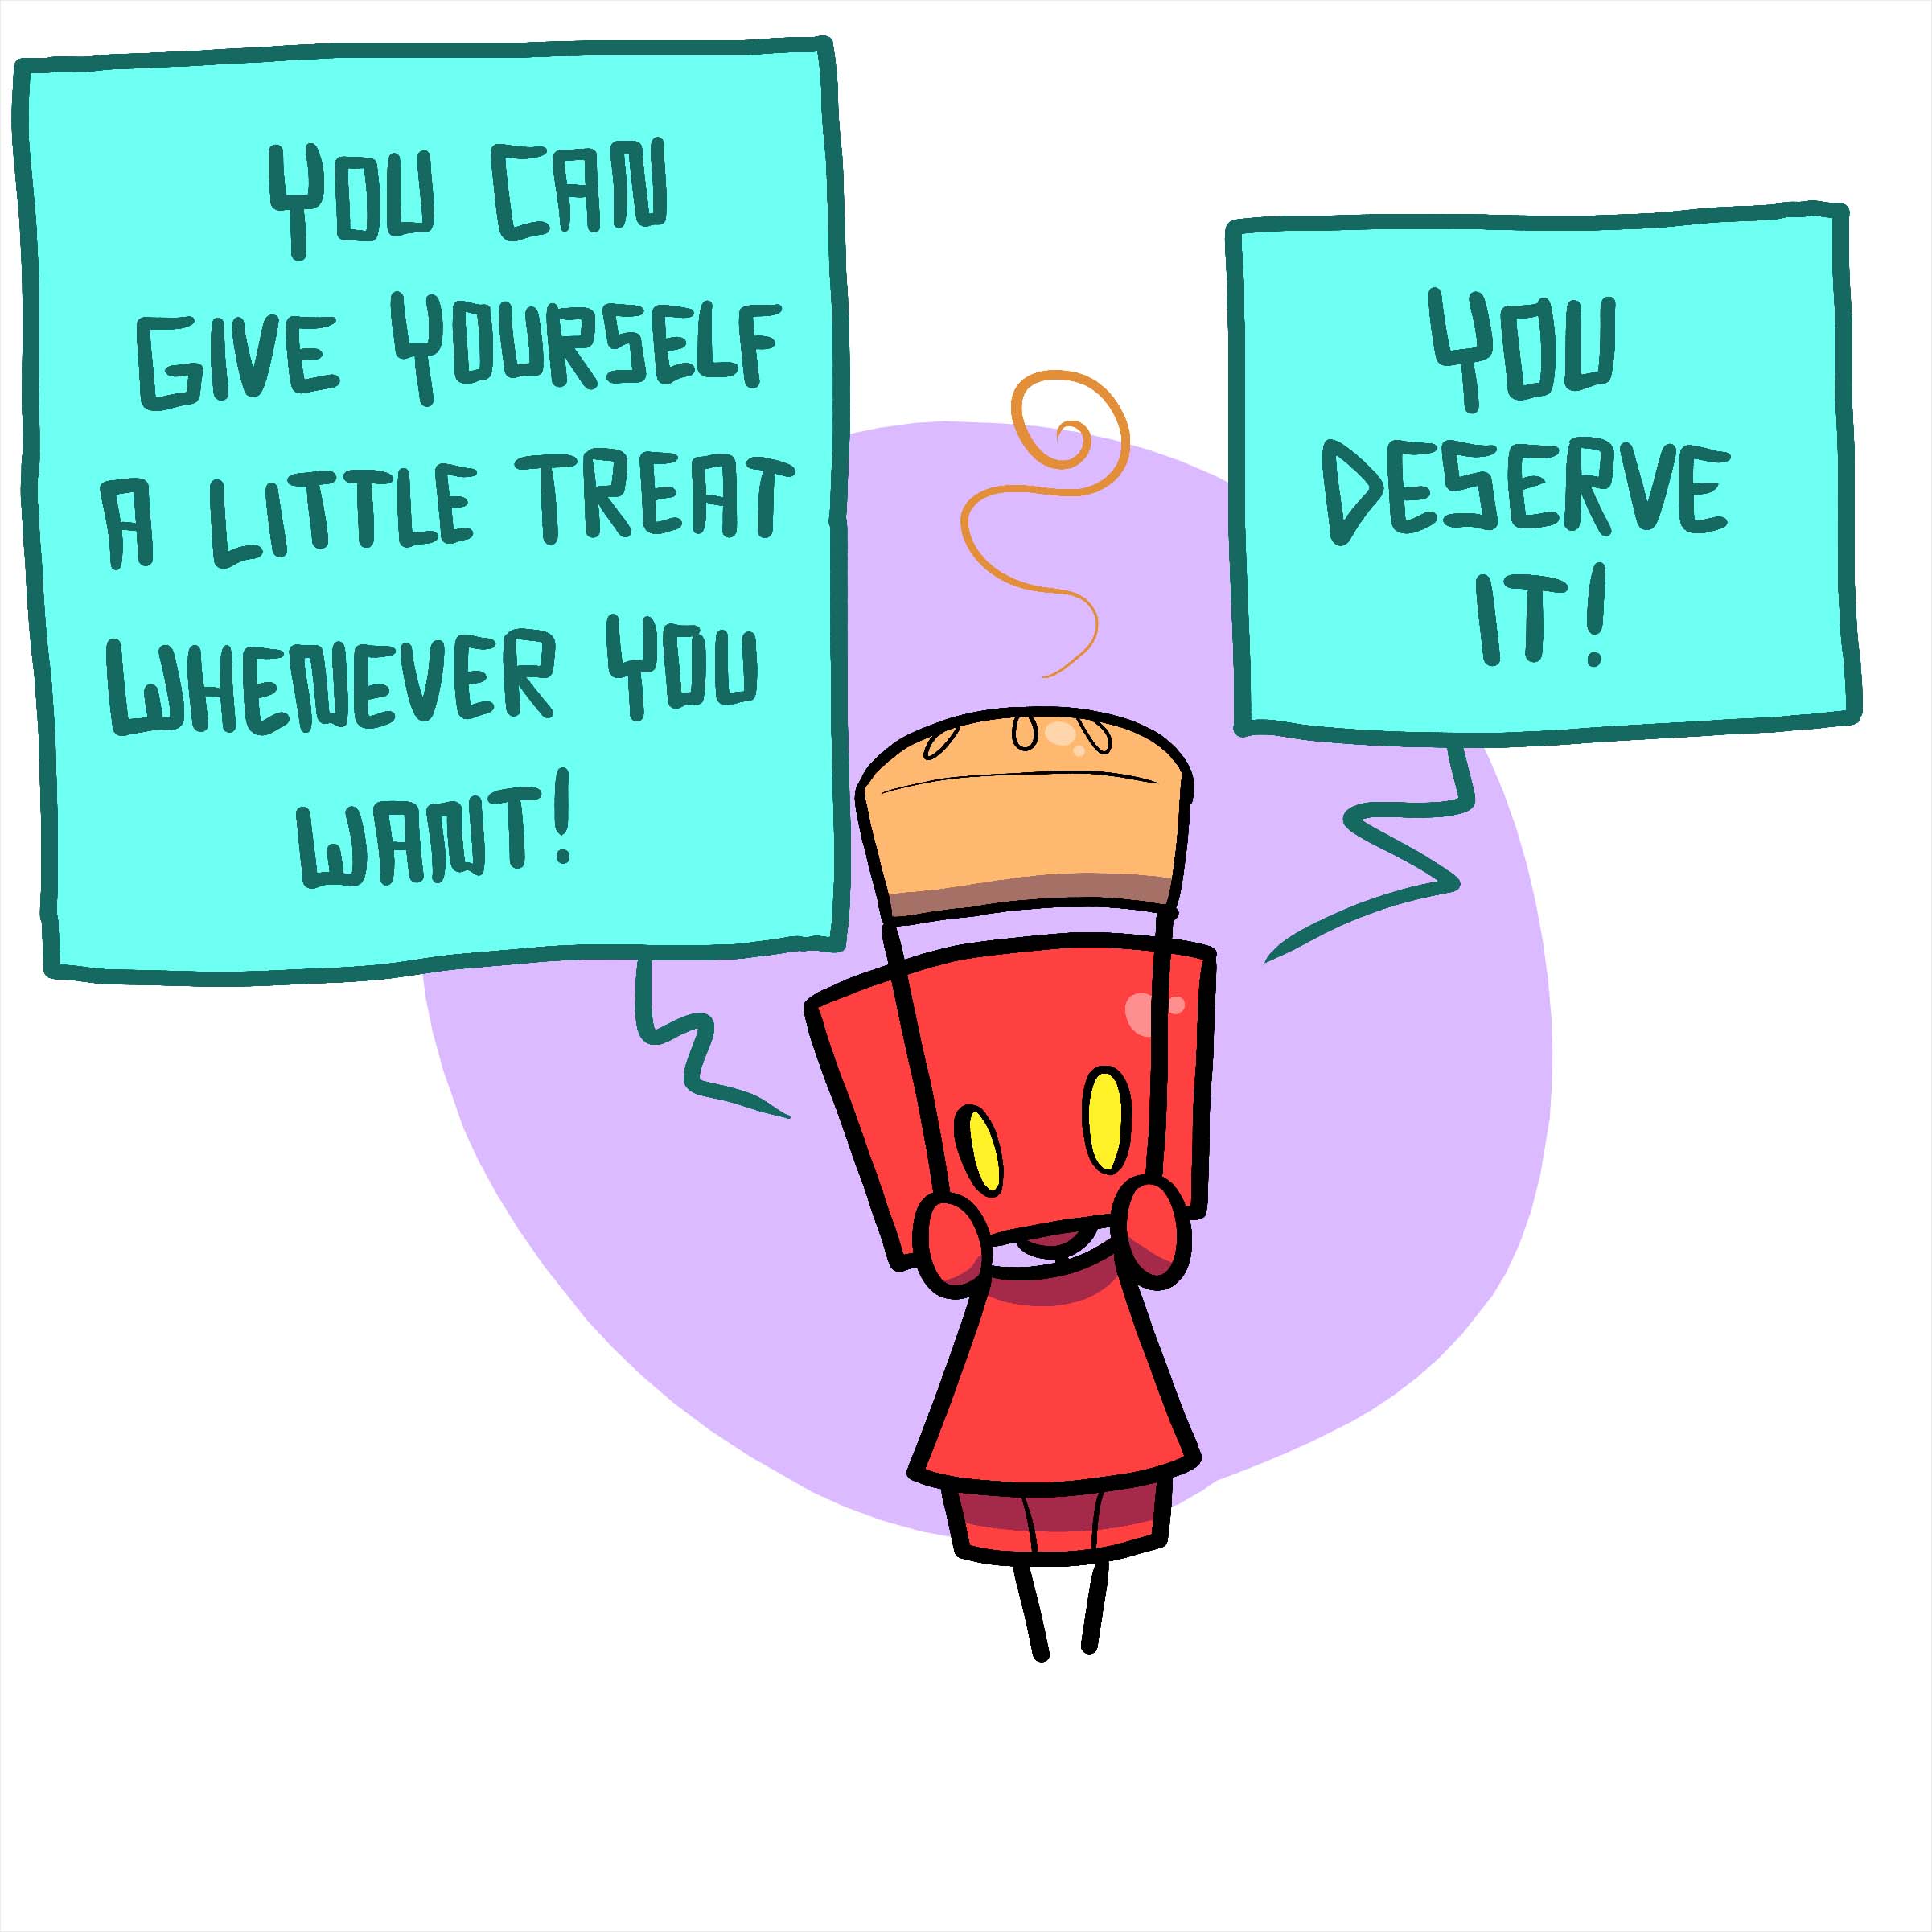 YOU CAN
GIVE YOURSELF
A LITTLE TREAT
WHENEVER YOU
WANT!
YOU
DESERVE
IT!